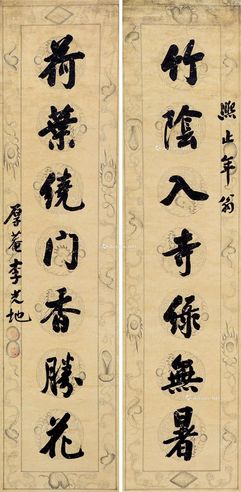 熙止年翁
竹陰入寺綠無暑
荷葉繞門香勝花
厚菴李光地